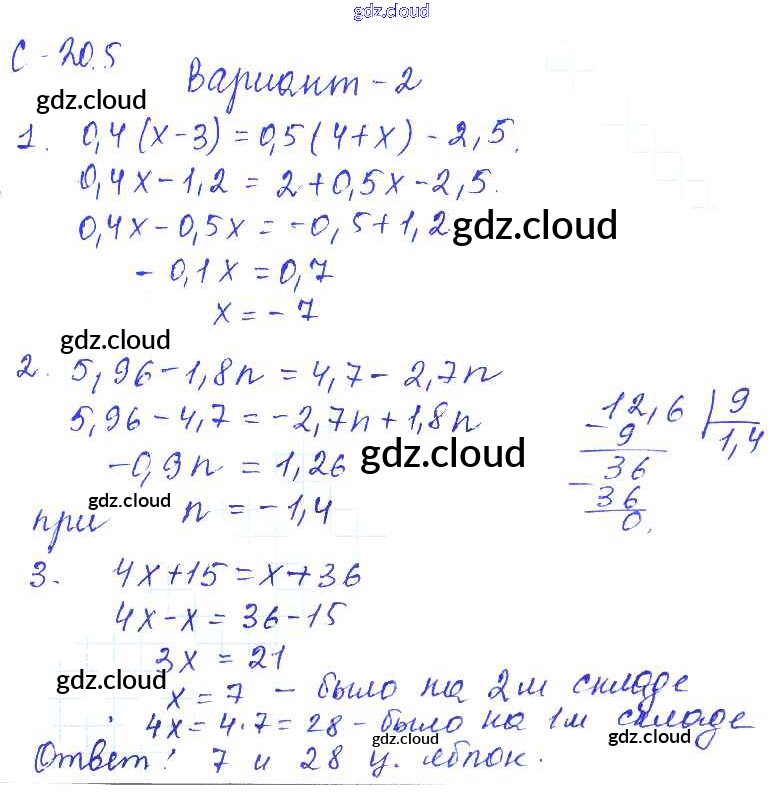 gdz.cloud
С-20.5
Вариант-2
gdz.cloud
1. 0,4(х-3)=0,5(4+х)-2,5.
0,4х-1,2=2+0,5х-2,5.
0,4х-0,5х=-0,5+1,2 gdz.cloud
-0,1х=0,7
х=-7
gdz.cloud
2. 5,96-1,8n=4,7-2,7n
5,96-4,7=-2,7n+1,8n
-0,9n=1,26 gdz.cloud
gdz.cloud
при n=-1,4
12,6 | 9
-9 1,4
36
-36
0.
3. 4х+15=х+36
4х-х=36-15
3х=21
gdz.cloud
х=7 - было на 2м складе
4х=4·7=28-было на 1м складе
gdz.cloud gdz.cloud
Ответ: 7 и 28 ц. яблок.